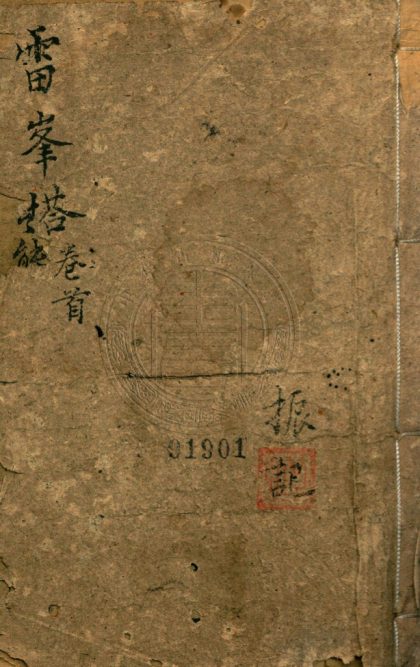 雷峯塔
卷首
振記
91901